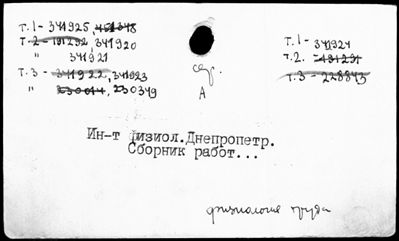 т.1 - 341925,
т.2 - 191292, 341920
" 341921
т.3 - 341922, 341923
" 230349
сер.
А
т.1 - 341924
т.2.
т.3 - 228843
Ин-т физиол.Днепропетр.
Сборник работ...
физиология труда